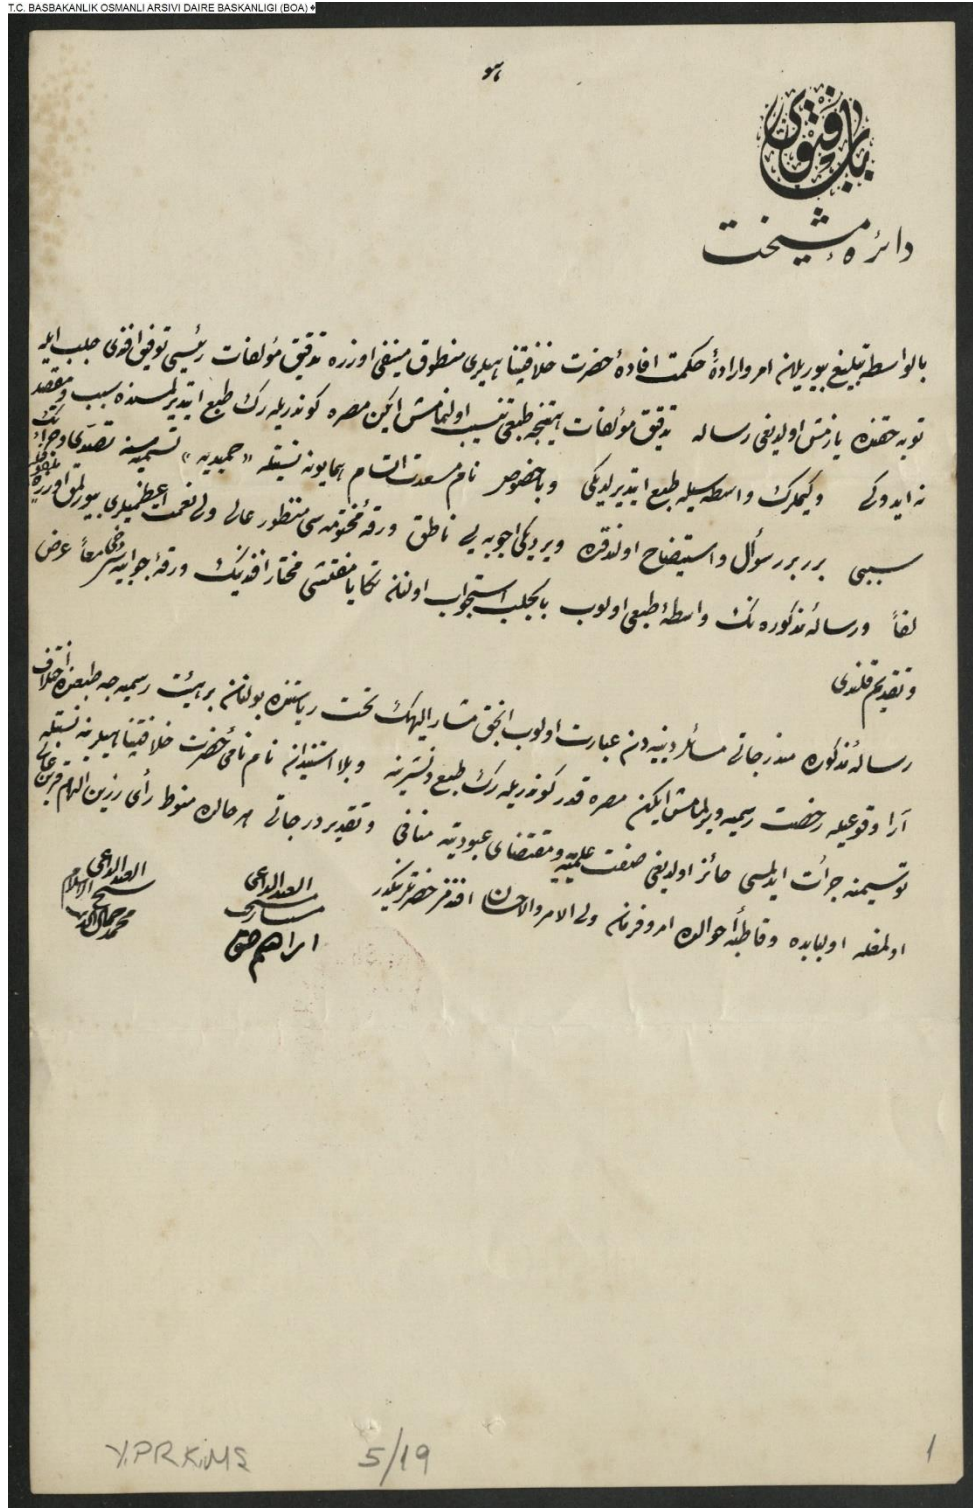 T.C. BASBAKANLIK OSMANLI ARSIVI DAIRE BASKANLIGI (BOA)
هو
باب فتوى
دائرهٔ مشيخت
بالواسطه تبليغ بيوريلان امر و ارادهٔ حكمت افادهٔ حضرت خلافتپناهيلرى منطوق منيفى اوزره تدقيق مؤلفات رئيسى توفيق افندى جلب ايله
توبه حقنده يازمش اولديغى رساله تدقيق مؤلفات هيئتنجه طبعى تنسيب اولنمامش ايكن مصره كوندريله رك طبع ايتديرلمسنده سبب و مقصد
نه ايدوكى و كيملرك واسطه سيله طبع ايتديرلديكى و باخصوص نام مسعدت اتسام همايونه نسبتله «حميديه» تسميه سنه تصدى و جرأتنك
سببى برر برر سؤال و استيضاح اولندقده ويرديكى اجوبه يى ناطق ورقهٔ مختومه سى منظور عالى ولى نعمت اعظميلرى بيورلمق اوزره
لفاً و رسالهٔ مذكوره نك واسطهٔ طبعى اولوب بالجلب استجواب اولنان تكايا مفتشى مختار افندينك ورقهٔ جوابيه سى دخى معاً عرض
و تقديم قلندى
رسالهٔ مذكوره مندرجاتى مسائل دينيه دن عبارت اولوب انجق مشار اليهك تحت رياستنده بولنان بر هيئت رسميه جه طبعنده اختلاف
آرا وقوعيله رخصت رسميه ويرلمامش ايكن مصره قدر كوندريله رك طبع و نشرينه و بلا استيذان نام نامئ حضرت خلافتپناهيلرينه نسبتله
توسيمنه جرأت ايدلمسى حائز اولديغى صفت علميه و مقتضاى عبوديته منافى و تقدير درجاتى هر حالده منوط رأى رزين الهام قرين عالى
اولمغله اولبابده و قاطبهٔ احوالده امر و فرمان ولى الامر والاحسان افندمز حضرتلرينكدر
العبد الداعى
مستشارى
ابراهيم حقى
العبد الداعى
شيخ الاسلام
محمد جمال الدين
Y.PRK.MŞ
5/19
1